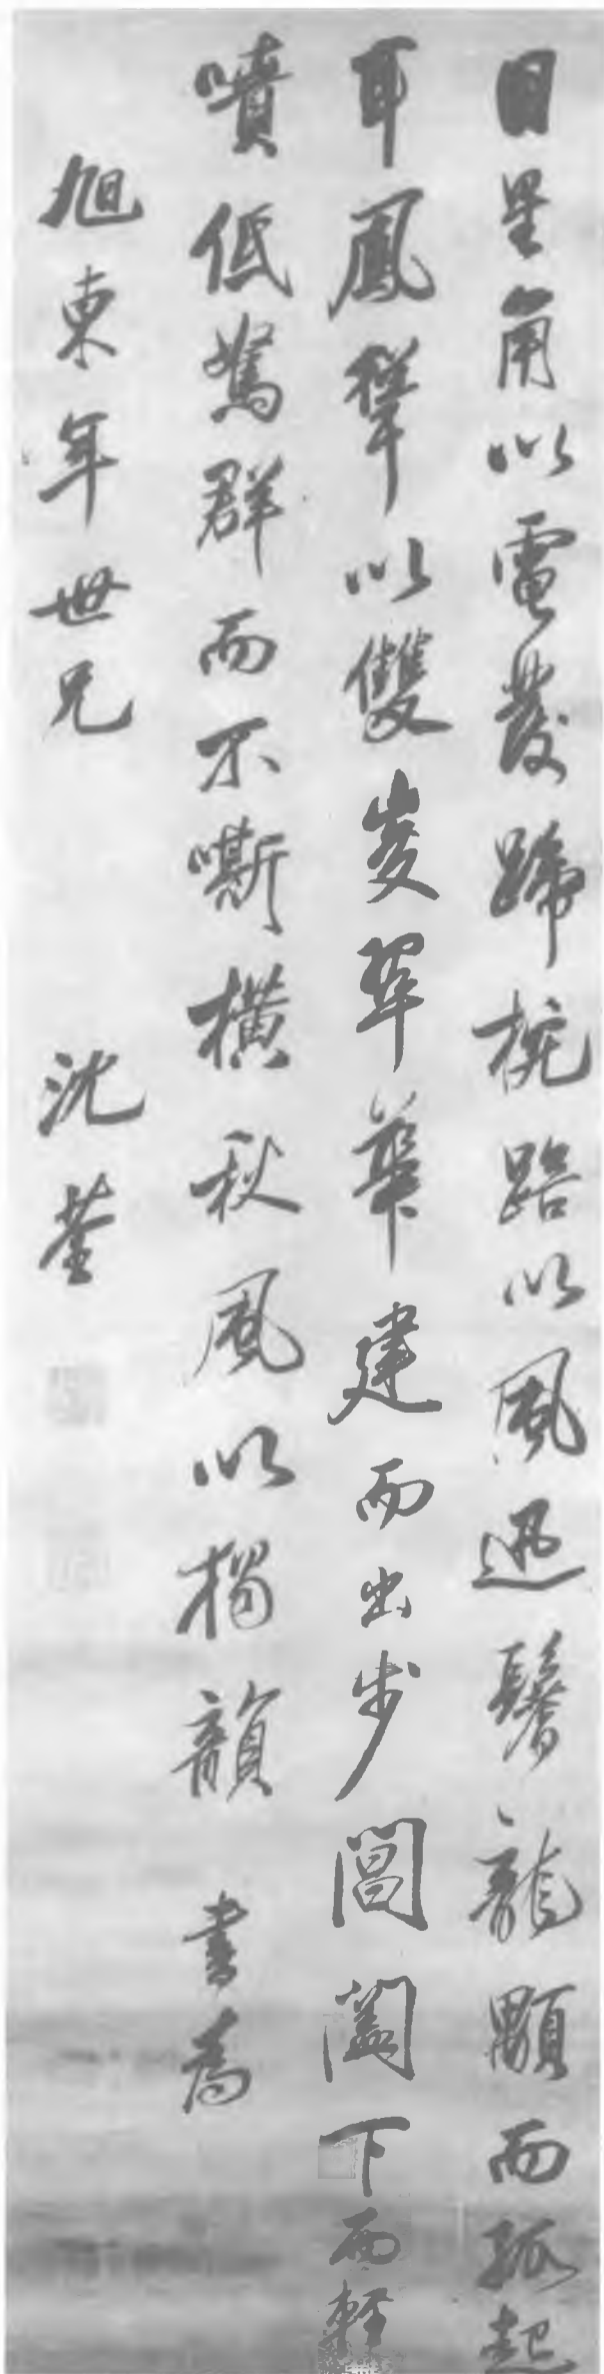 目星角以電發蹄椀踣以風迅鬐龍顒而孤起
耳鳳聳以雙峻翠華建而出步閶闔下而輕
噴低駑群而不嘶橫秋風以獨韻 書為
旭東年世兄 沈荃